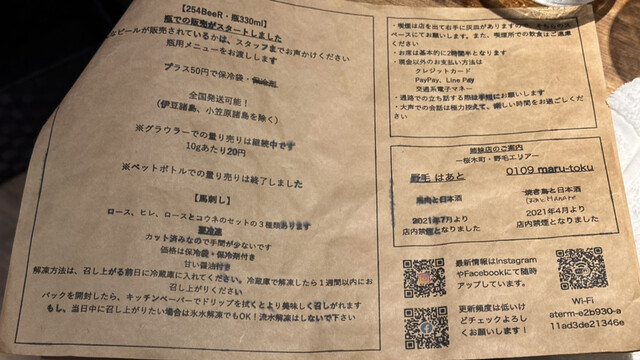 【254BeeR・瓶330ml】
瓶での販売がスタートしました
なビールが販売されているかは、スタッフまでお声かけください
瓶用メニューをお渡しします
プラス50円で保冷袋・保冷剤
全国発送可能！
（伊豆諸島、小笠原諸島を除く）
※グラウラーでの量り売りは継続中です
10gあたり20円
※ペットボトルでの量り売りは終了しました
【馬刺し】
ロース、ヒレ、ロースとコウネのセットの３種類あります
カット済みなので手間が少ないです
価格は保冷袋・保冷剤付き
甘い醤油付き
解凍方法は、召し上がる前日に冷蔵庫に入れてください。冷蔵庫で解凍したら1週間以内にお
召し上がりください
パックを開封したら、キッチンペーパーでドリップを拭くとより美味しく召しがれます
もし、当日中に召し上がりたい場合は氷水解凍でもOK！流水解凍はしないで下さい
・喫煙は店を出て右手に灰皿がありますので、そちらのス
ペースにてお願いします。また、喫煙所での飲食はご遠慮
ください
・お席は基本的に2時間半となります
・現金以外のお支払い方法は
クレジットカード
PayPay、Line Pay
交通系電子マネー
・通路での立ち話する際は手短にお願いします
・大声での会話は極力控えて、楽しい時間をお過ごしくだ
さい
姉妹店のご案内
ー桜木町・野毛エリアー
野毛 はあと
鳥肉と日本酒
2021年7月より
店内禁煙となりました
0109 maru-toku
焼き鳥と日本酒
2021年4月より
店内禁煙となりました
最新情報はInstagram
やFacebookにて随時
アップしています。
更新頻度は低いけ
どチェックよろし
くお願いします！
Wi-Fi
aterm-e2b930-a
11ad3de21346e